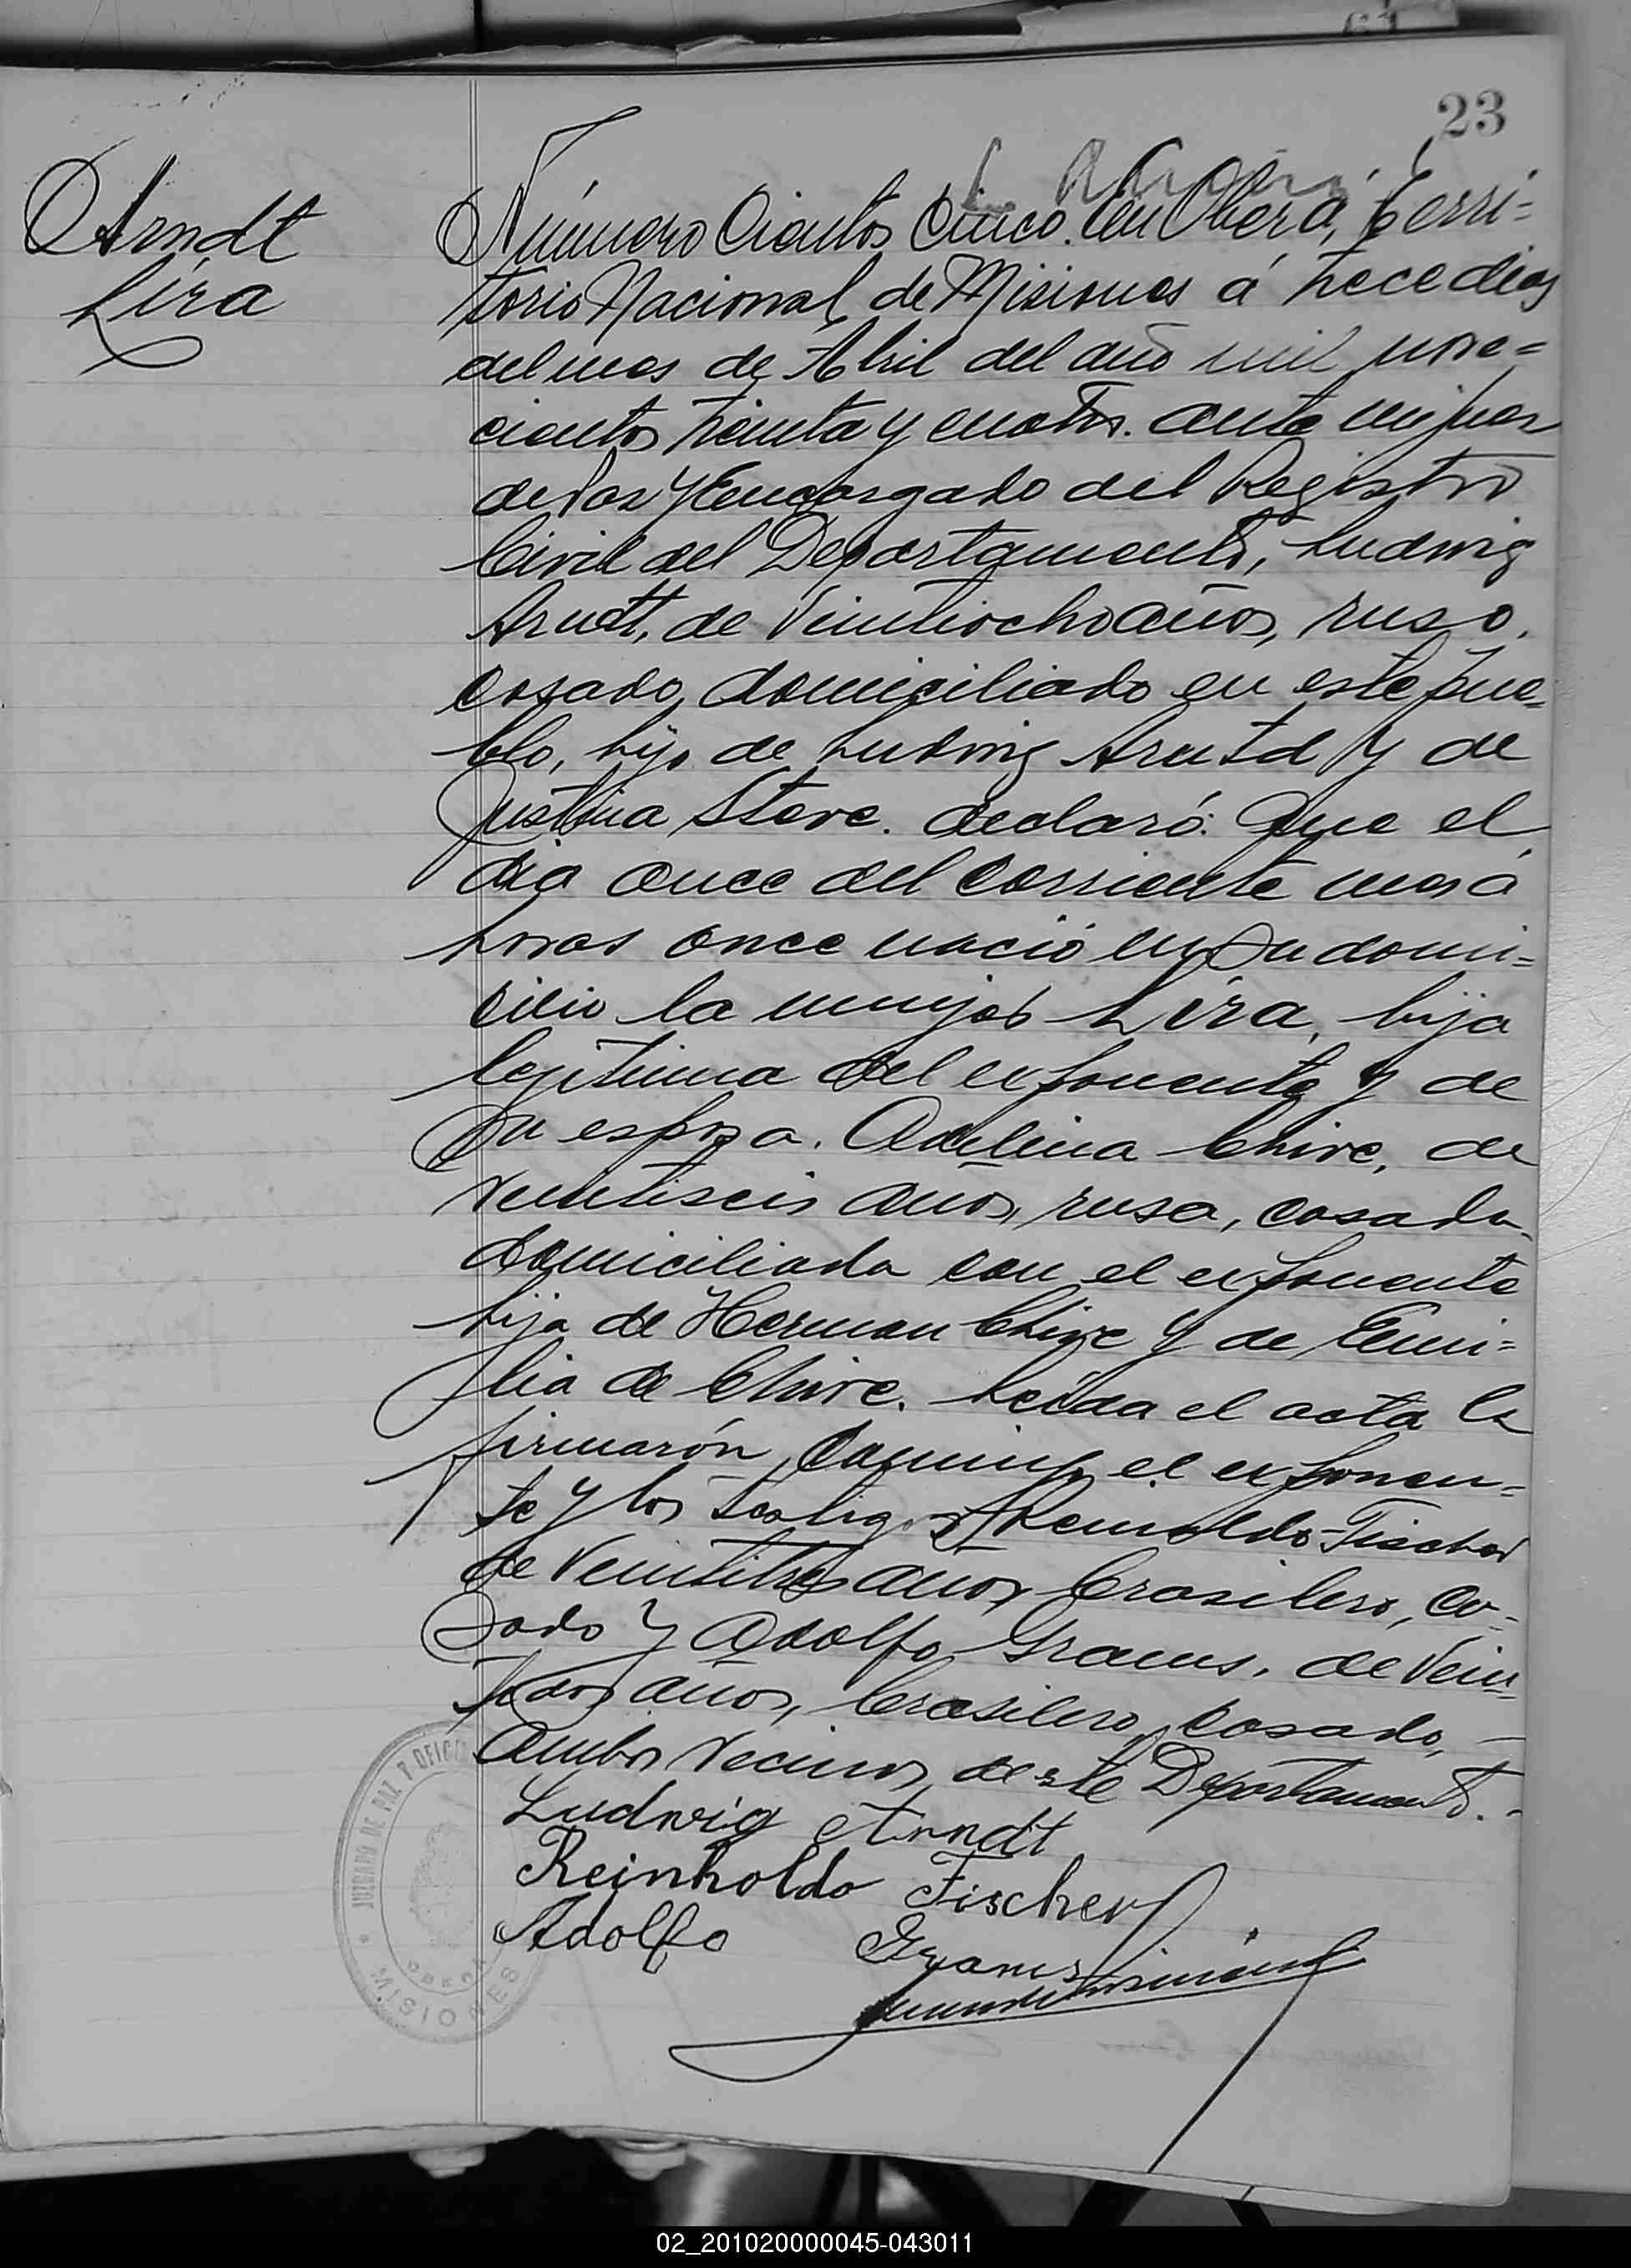 23
Arndt
Lira
Número Cientos Cinco. En Oberá, Terri=
torio Nacional de Misiones á trece dias
del mes de Abril del año mil nove=
cientos treinta y cuatro. ante mi Juez
de Paz y Encargado del Registro
Civil del Departamento, Ludwig
Arndt, de Veintiocho años, ruso,
casado, domiciliado en este pue=
blo, hijo de Ludwig Arntd y de
Justina Steve. declaró: Que el
dia once del corriente mes á
horas once nació en su domi=
cilio la mujer Lira, hija
legitima del exponente y de
su esposa. Adelina Chive, de
veintiseis años, rusa, casada,
domiciliada con el exponente
hija de Herman Chive y de Emi=
lia de Chive. Leida el acta la
firmarón conmigo el exponen=
te y los testigos Reinoldo Fischer
de Veintitres años brasilero, ca-
sado y Adolfo Grams, de Vein-
tidos años, brasilero, casado,
Ambos vecinos de este Departamento.-
Ludwig Arndt
Reinholdo Fischer
Adolfo Grams
JUZGADO DE PAZ Y OFICI
OBERA
MISIONES
02_201020000045-043011